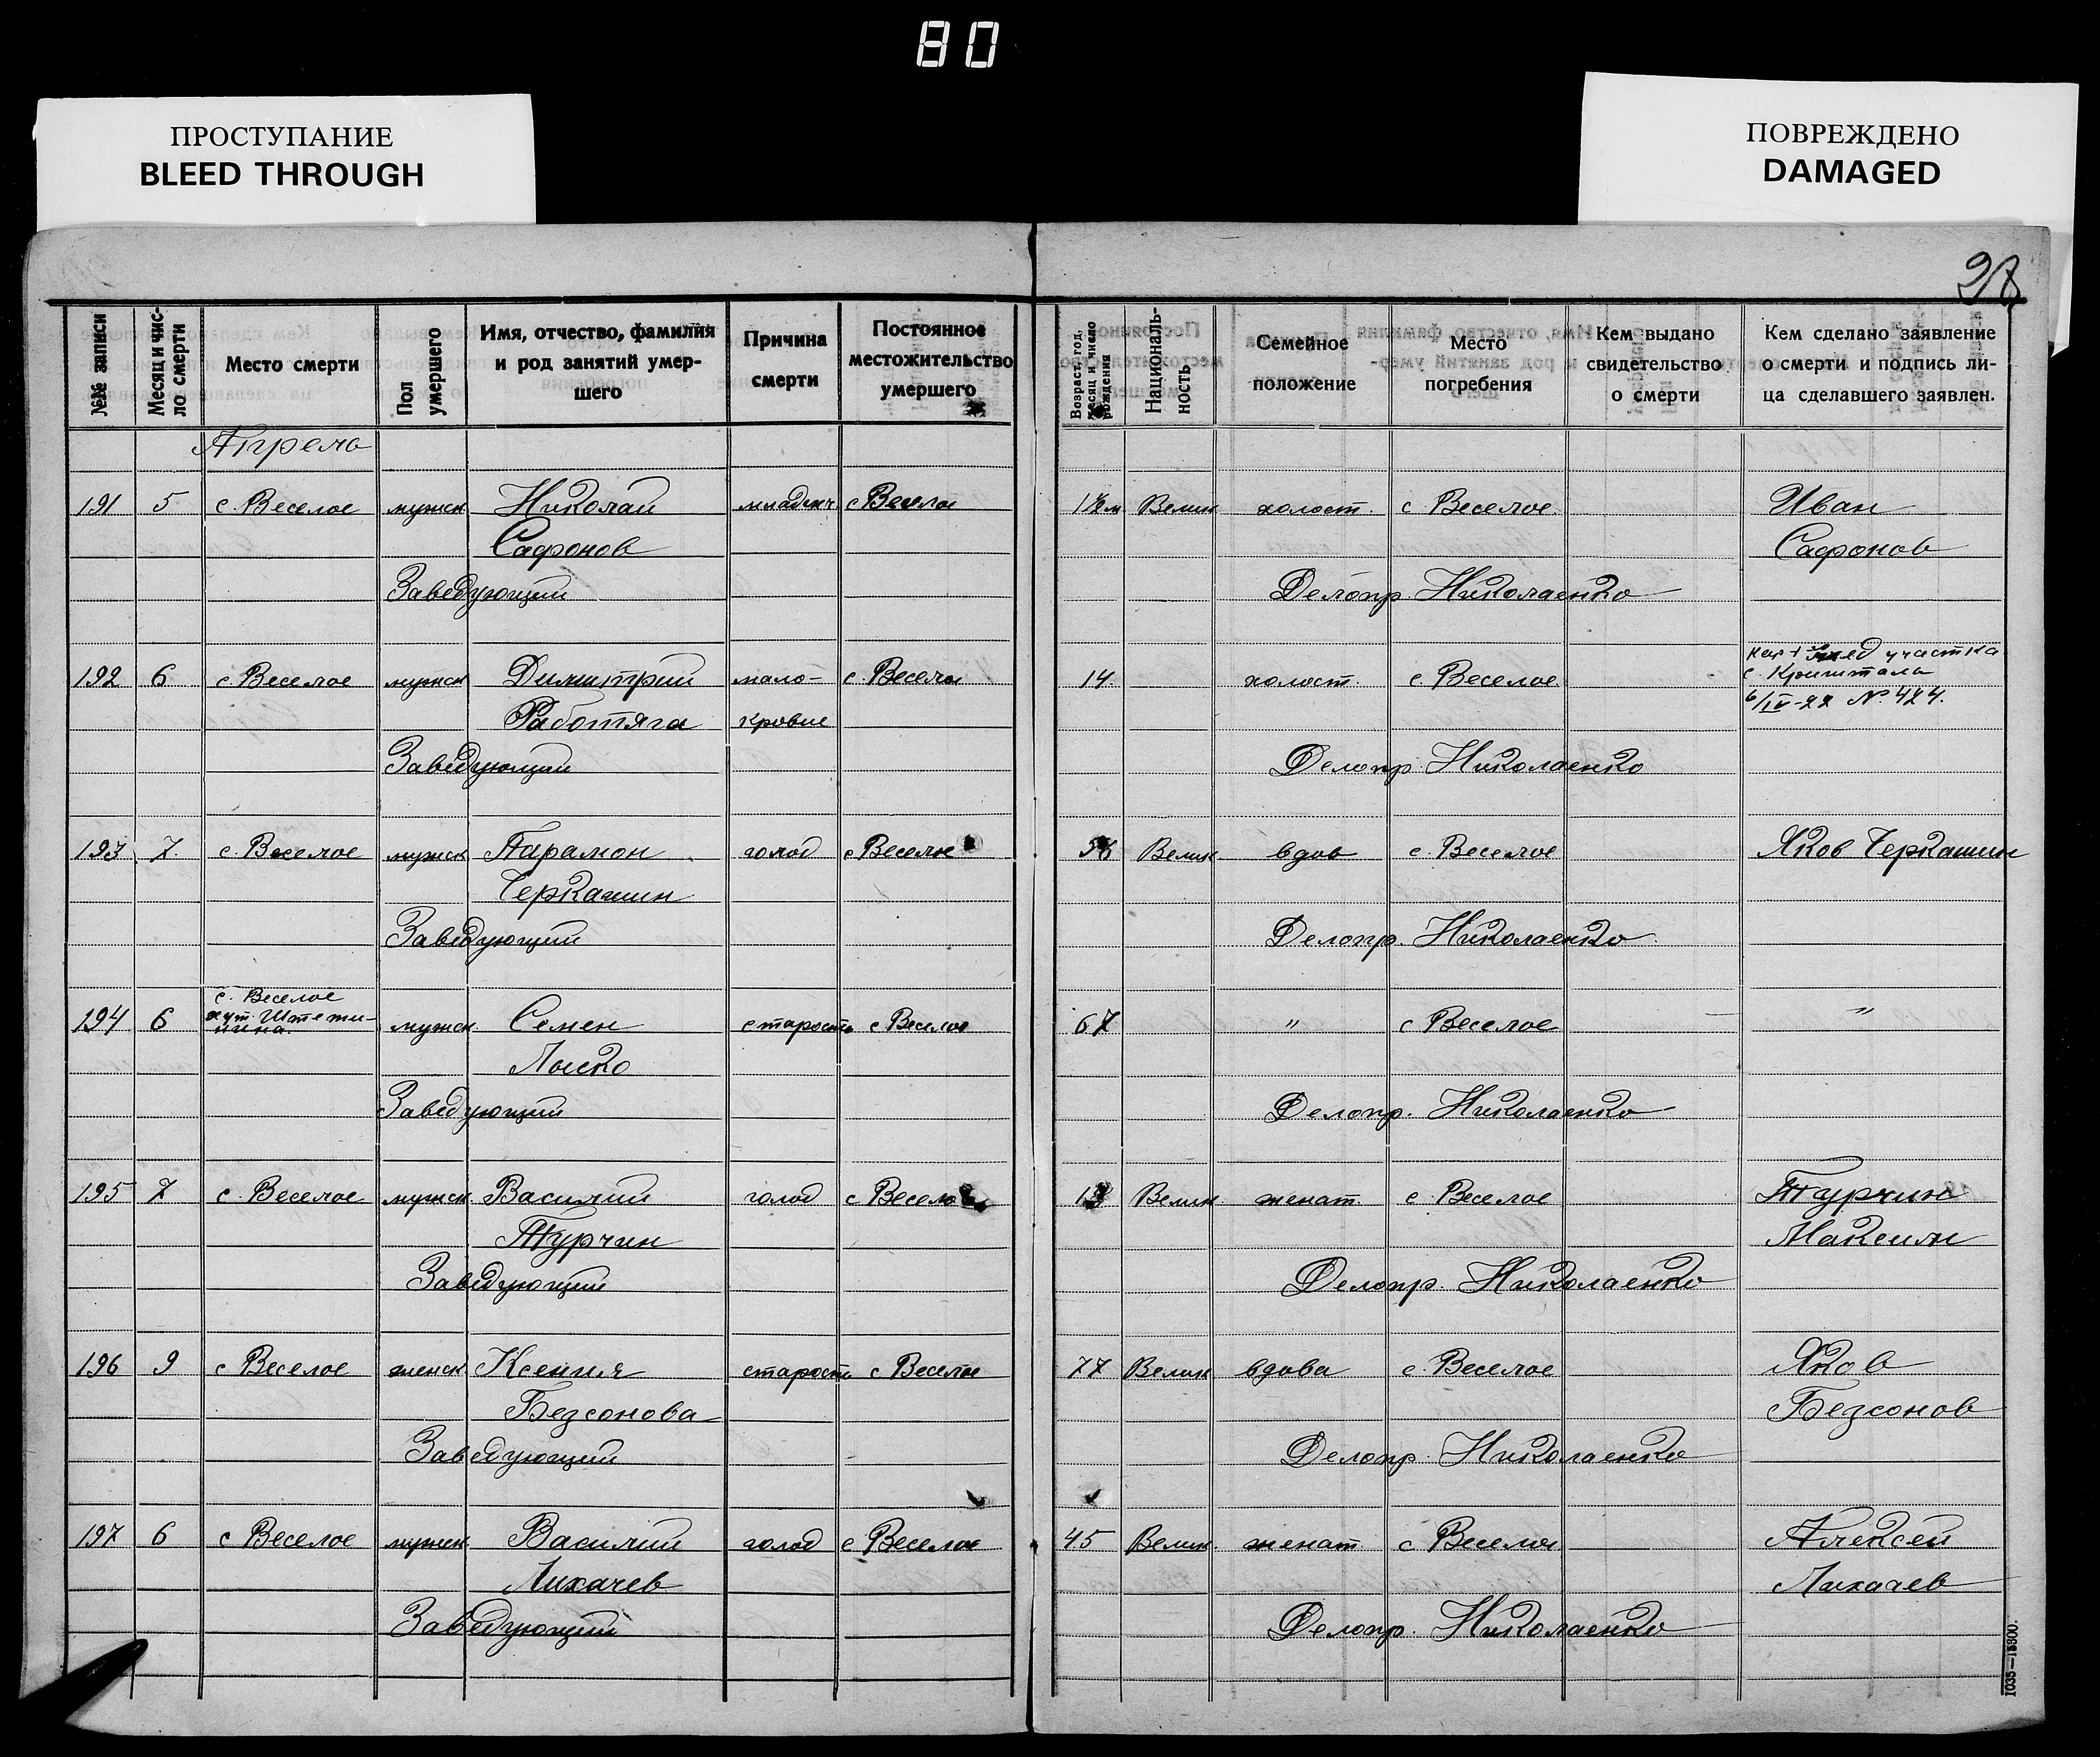 80
ПРОСТУПАНИЕ
BLEED THROUGH
ПОВРЕЖДЕНО
DAMAGED
98
№№ записи
Месяц и чис-
ло смерти
Место смерти
Пол
умершего
Имя, отчество, фамилия
и род занятий умер-
шего
Причина
смерти
Постоянное
местожительство
умершего
Возраст, год,
месяц и число
рождения
Националь-
ность
Семейное
положение
Место
погребения
Кем выдано
свидетельство
о смерти
Кем сделано заявление
о смерти и подпись ли-
ца сделавшего заявлен.
Апрель
191 5 с. Веселое мужск Николай младенч с Веселое Велик холост. с Веселое. Иван
Сафонов Сафонов
Заведующий Делопр. Николаенко
192 6 с. Веселое мужск Димитрий мало- с. Веселое 14. холост. с. Веселое участка
с. Кронштата
6/IV-22 № 424.
Работяга кровие
Заведующий Делопр. Николаенко
193 7. с. Веселое мужск Парамон голод с Веселое Велик вдов с. Веселое Яков Черкашин
Черкашин
Заведующий Делопр. Николаенко
с. Веселое
194 6 хут. мужск. Семен старость с Веселое 67 " с Веселое "
Лыско
Заведующий Делопр. Николаенко
195 7 с. Веселое мужск. Василий голод с Веселое Велик женат с Веселое Турчин
Турчин Максим
Заведующий Делопр. Николаенко
196 9 с Веселое женск Ксения старость с Веселое 77 Велик вдова с. Веселое Яков
Безсонова Безсонов
Заведующий Делопр. Николаенко
197 6 с Веселое мужск Василий голод с Веселое 45 Велик женат с Веселое Алексей
Лихачев Лихачев
Заведующий Делопр. Николаенко
1035—15800.